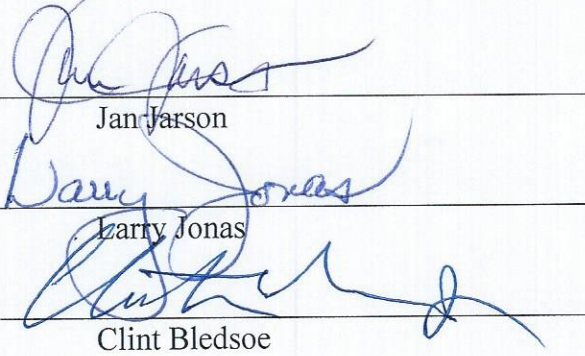 Jan Jarson
Jan Jarson
Larry Jonas
Larry Jonas
Clint Bledsoe